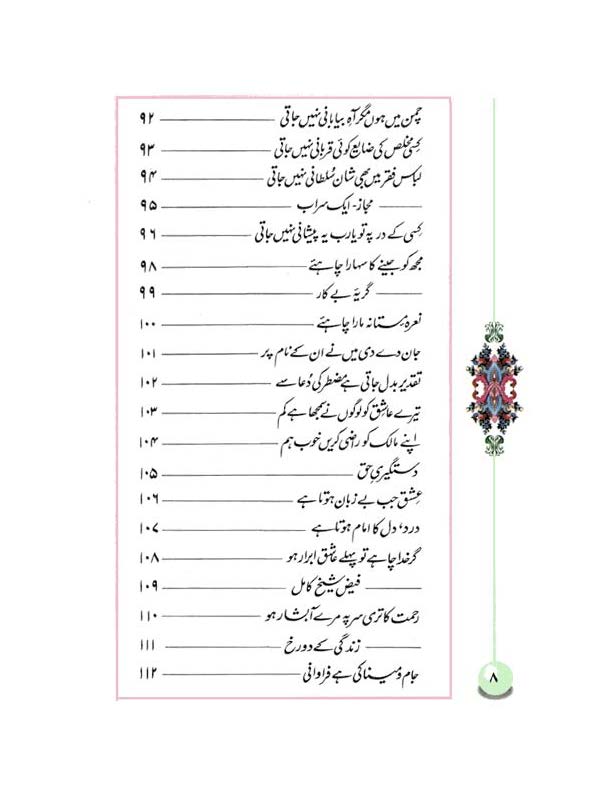 چمن میں ہوں مگر آہِ بیابانی نہیں جاتی ۹۲
کسی مخلص کی ضایع کوئی قربانی نہیں جاتی ۹۳
لباسِ فقر میں بھی شانِ سُلطانی نہیں جاتی ۹۴
مجاز - ایک سراب ۹۵
کسی کے در پہ تو یارب یہ پیشانی نہیں جاتی ۹۶
مجھ کو جینے کا سہارا چاہئے ۹۸
گریۂ بے کار ۹۹
نعرۂ مستانہ مارا چاہئے ۱۰۰
جان دے دی میں نے ان کے نام پر ۱۰۱
تقدیر بدل جاتی ہے مُضطر کی دُعا سے ۱۰۲
تیرے عاشق کو لوگوں نے سمجھا ہے کم ۱۰۳
اپنے مالک کو راضی کریں خوب ہم ۱۰۴
دستگیریِ حق ۱۰۵
عِشق جب بے زبان ہوتا ہے ۱۰۶
درد، دل کا امام ہوتا ہے ۱۰۷
گر خدا چاہے تو پہلے عاشقِ ابرار ہو ۱۰۸
فیضِ شیخِ کامل ۱۰۹
رحمت کا تری سر پہ مرے آبشار ہو ۱۱۰
زندگی کے دو رخ ۱۱۱
جام و مینا کی ہے فراوانی ۱۱۲
۸